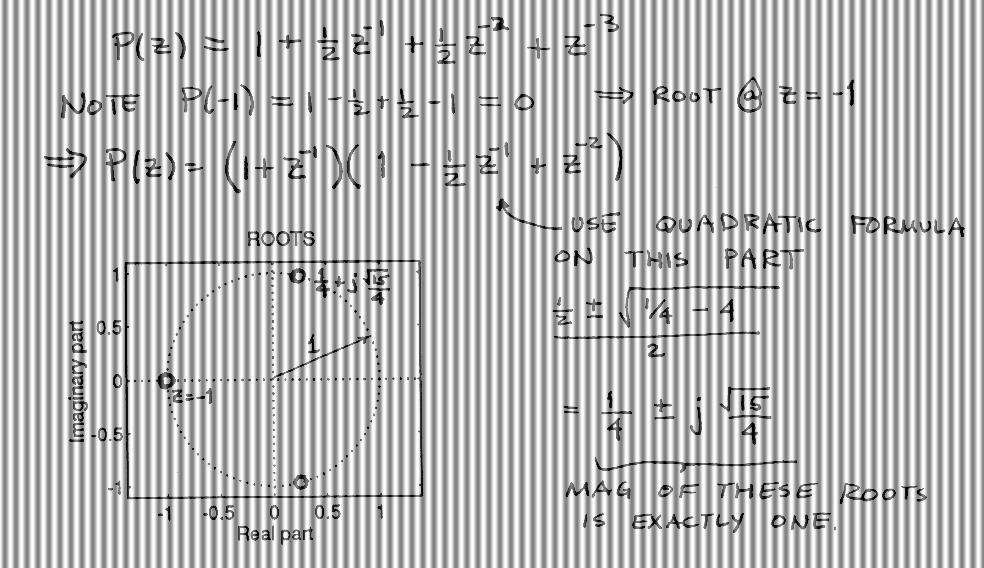 P(z) = 1 + ½ z⁻¹ + ½ z⁻² + z⁻³
NOTE P(-1) = 1 - ½ + ½ - 1 = 0 ⟹ ROOT @ z = -1
⟹ P(z) = (1 + z⁻¹)(1 - ½ z⁻¹ + z⁻²)
USE QUADRATIC FORMULA
ON THIS PART
(½ ± √(1/4 - 4)) / 2
= 1/4 ± j √15/4
MAG OF THESE ROOTS
IS EXACTLY ONE.
ROOTS
1/4 + j √15/4
1
z=-1
Imaginary part
1
0.5
0
-0.5
-1
-1 -0.5 0 0.5 1
Real part